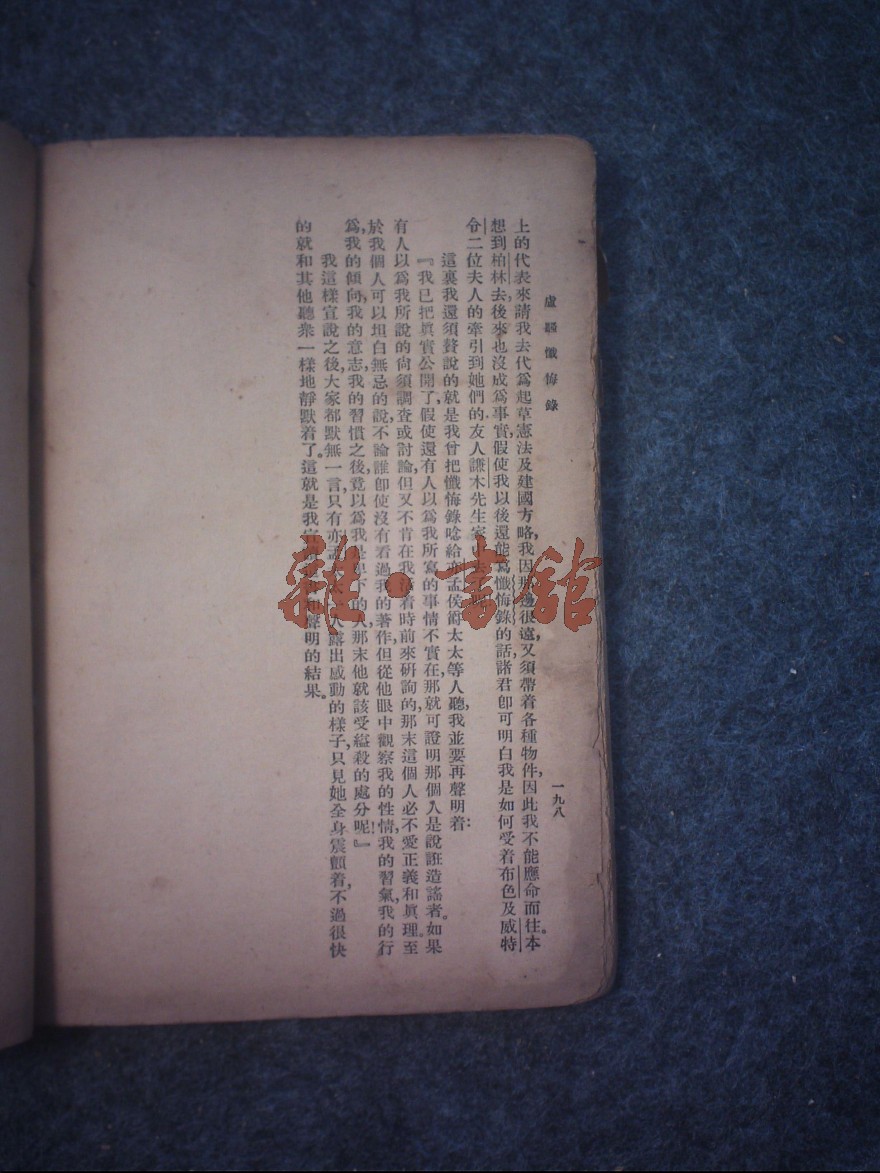 盧騷懺悔錄
一九八
上的代表來請我去代爲起草憲法及建國方略，我因那邊很遠，又須帶着各種物件，因此我不能應命而往。本
想到柏林去，後來也沒成爲事實，假使我以後還能爲懺悔錄的話，諸君卽可明白我是如何受着布色及威特
令二位夫人的牽引到她們的友人謙木先生家
這裏我還須贅說的就是我曾把懺悔錄唸給亦孟侯爵太太等人聽，我並要再聲明着：
『我已把眞實公開了，假使還有人以爲我所寫的事情不實在，那就可證明那個人是說誑造謠者。如果
有人以爲我所說的尙須調査或討論，但又不肯在我活着時前來硏詢的，那末這個人必不愛正義和眞理。至
於我個人可以坦白無忌的說，不論誰卽使沒有看過我的著作，但從他眼中觀察我的性情，我的習氣，我的行
爲，我的傾向，我的意志，我的習慣之後，竟以爲我是卑下的人，那末他就該受縊殺的處分呢！』
我這樣宣說之後，大家都默無一言，只有亦孟 人露出感動的樣子，只見她全身震顫着，不過很快
的就和其他聽衆一樣地靜默着了。這就是我 和聲明的結果。
雜·書館